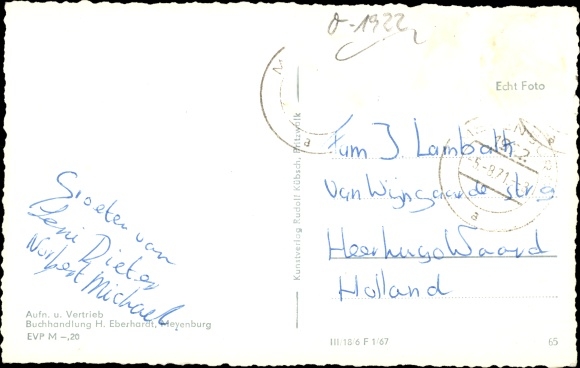 0-1922
Echt Foto
Fam J. Lambalk
van Wijngaarde str 9
HeerhugoWaard
Holland
Groeten van
Leni Dieter
Norbert Michael
Kunstverlag Rudolf Kübsch, Pritzwalk
Aufn. u. Vertrieb
Buchhandlung H. Eberhardt, Meyenburg
EVP M –,20
III/18/6 F 1/67
65